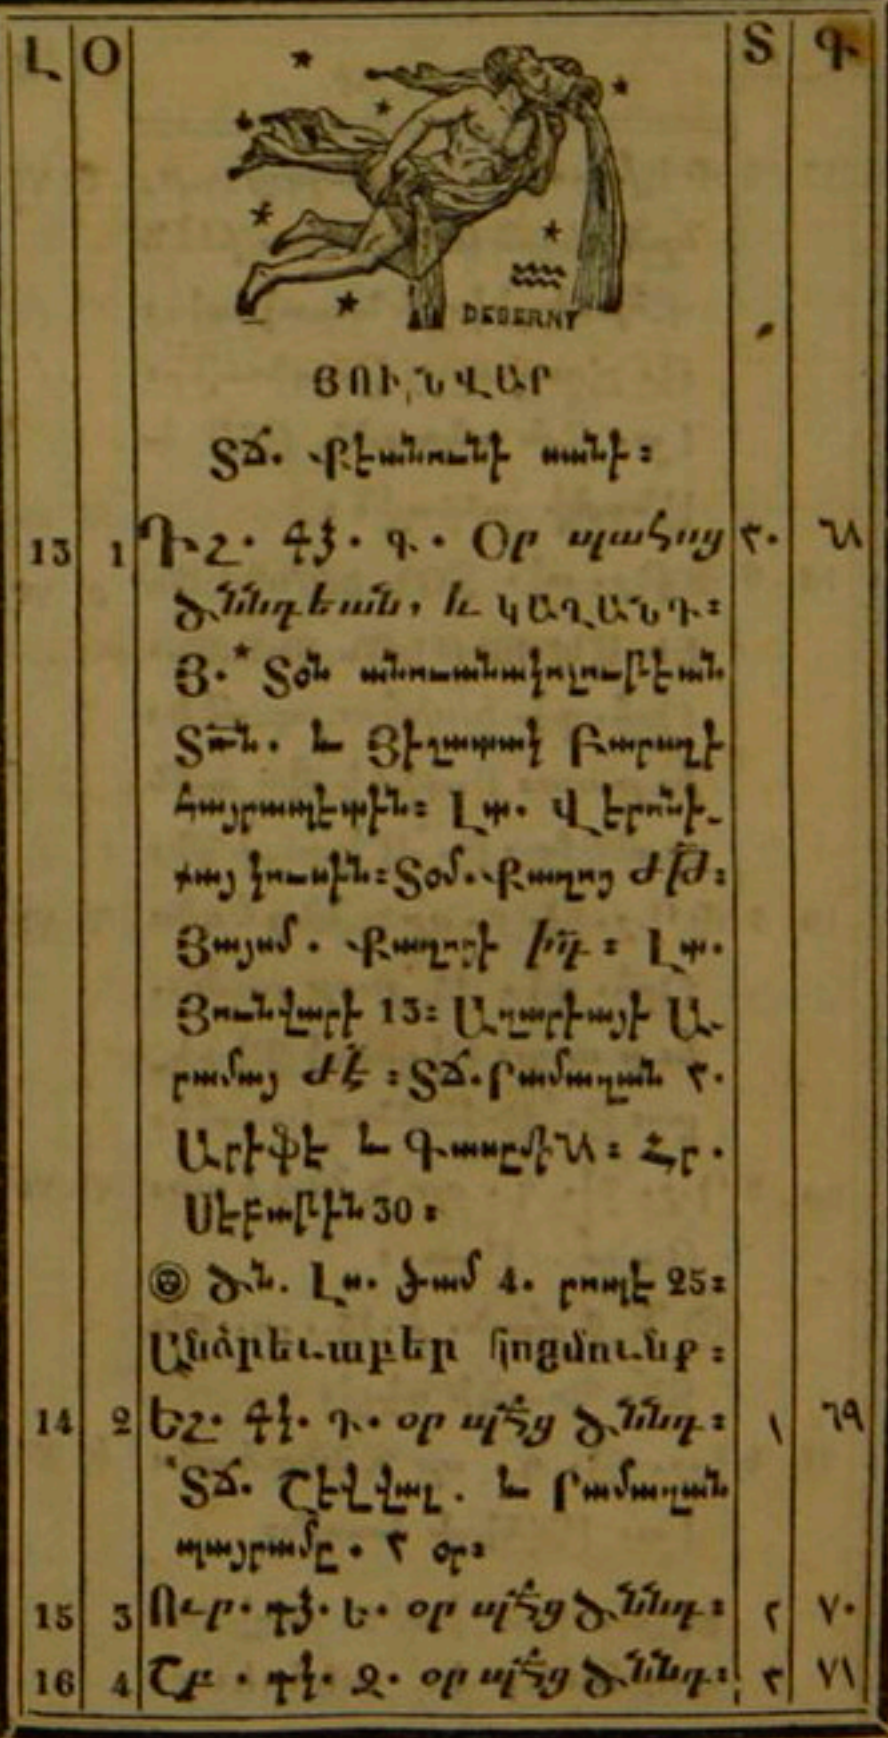 Լ Օ Տ Գ
DEBERNY
ՅՈՒՆՎԱՐ
ՏՃ. Քէանունի սանի։
13 1 Դիշ. ԳՁ. գ. Օր պահոց ٣٠ ٦٨
ծննդեան, և ԿԱՂԱՆԴ։
Յ.* Տօն անուանակոչութէան
Տն. և Յիշատակ Բարսղի
հայրապետին։ Լտ. Վերօնի-
քայ կուսին։ Տօմ. Քաղոց ԺԹ։
Յայսմ. Քաղոցի իդ։ Լտ.
Յունվարի 13։ Ազարիայի Ա-
րամայ ԺԷ։ ՏՃ. րամազան ٣٠
Արիֆէ և Գասըմին ٦٨։ Հր.
Սէբաթին 30։
Ծն. Լս. ժամ 4. րոպէ 25։
Անձրեւաբեր հողմունք։
14 2 Եշ. ԳԿ. դ. օր պհց ծննդ։ ١ ٦٩
ՏՃ. Շէվվալ. և րամազան
պայրամը. ٣ օր։
15 3 Ուր. ԴՁ. ե. օր պհց ծննդ։ ٢ ٧٠
16 4 Շբ. ԴԿ. զ. օր պհց ծննդ։ ٣ ٧١